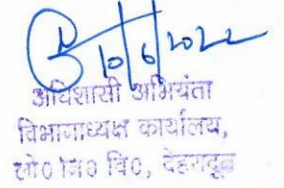 10/6/2022
अधिशासी अभियंता
विभागाध्यक्ष कार्यालय,
लो० नि० वि०, देहरादून